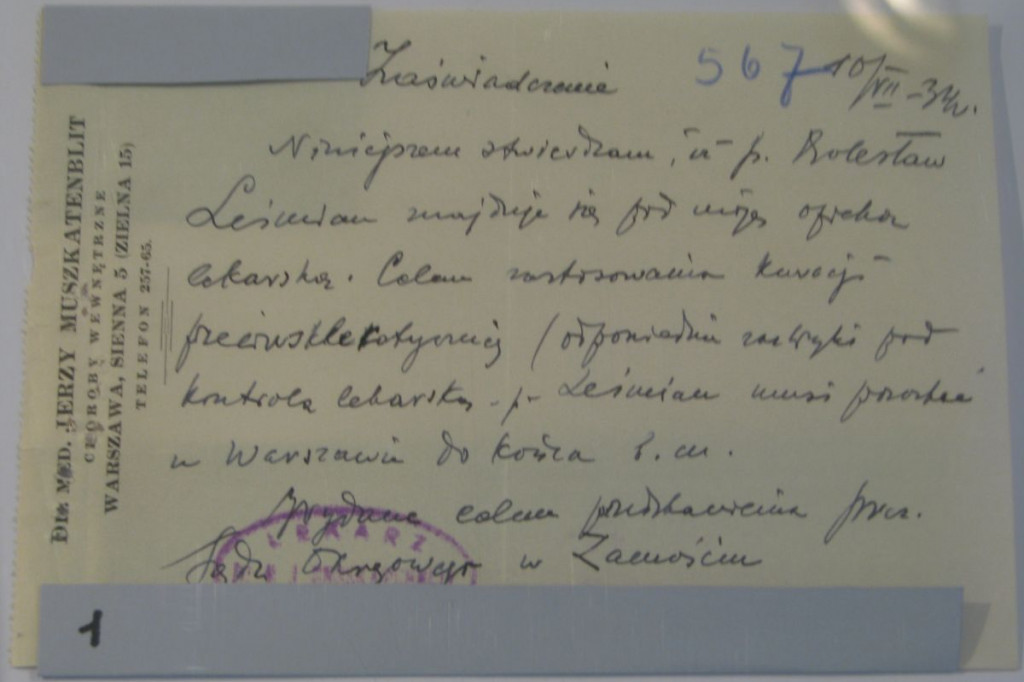 Zaświadczenie
567
10/VII-34r.
Niniejszem stwierdzam, iż p. Bolesław
Leśmian znajduje się pod moją opieką
lekarską. Celem zastosowania kuracji
przeciwsklerotycznej /odpowiednie zastrzyki pod
kontrolą lekarską - p. Leśmian musi pozostać
w Warszawie do końca b.m.
Wydane celem przedstawienia Prez.
Sądu Okręgowego w Zamościu
DR. MED. JERZY MUSZKATENBLIT
CHOROBY WEWNĘTRZNE
WARSZAWA, SIENNA 5 (ZIELNA 15)
TELEFON 257-65.
LEKARZ
1